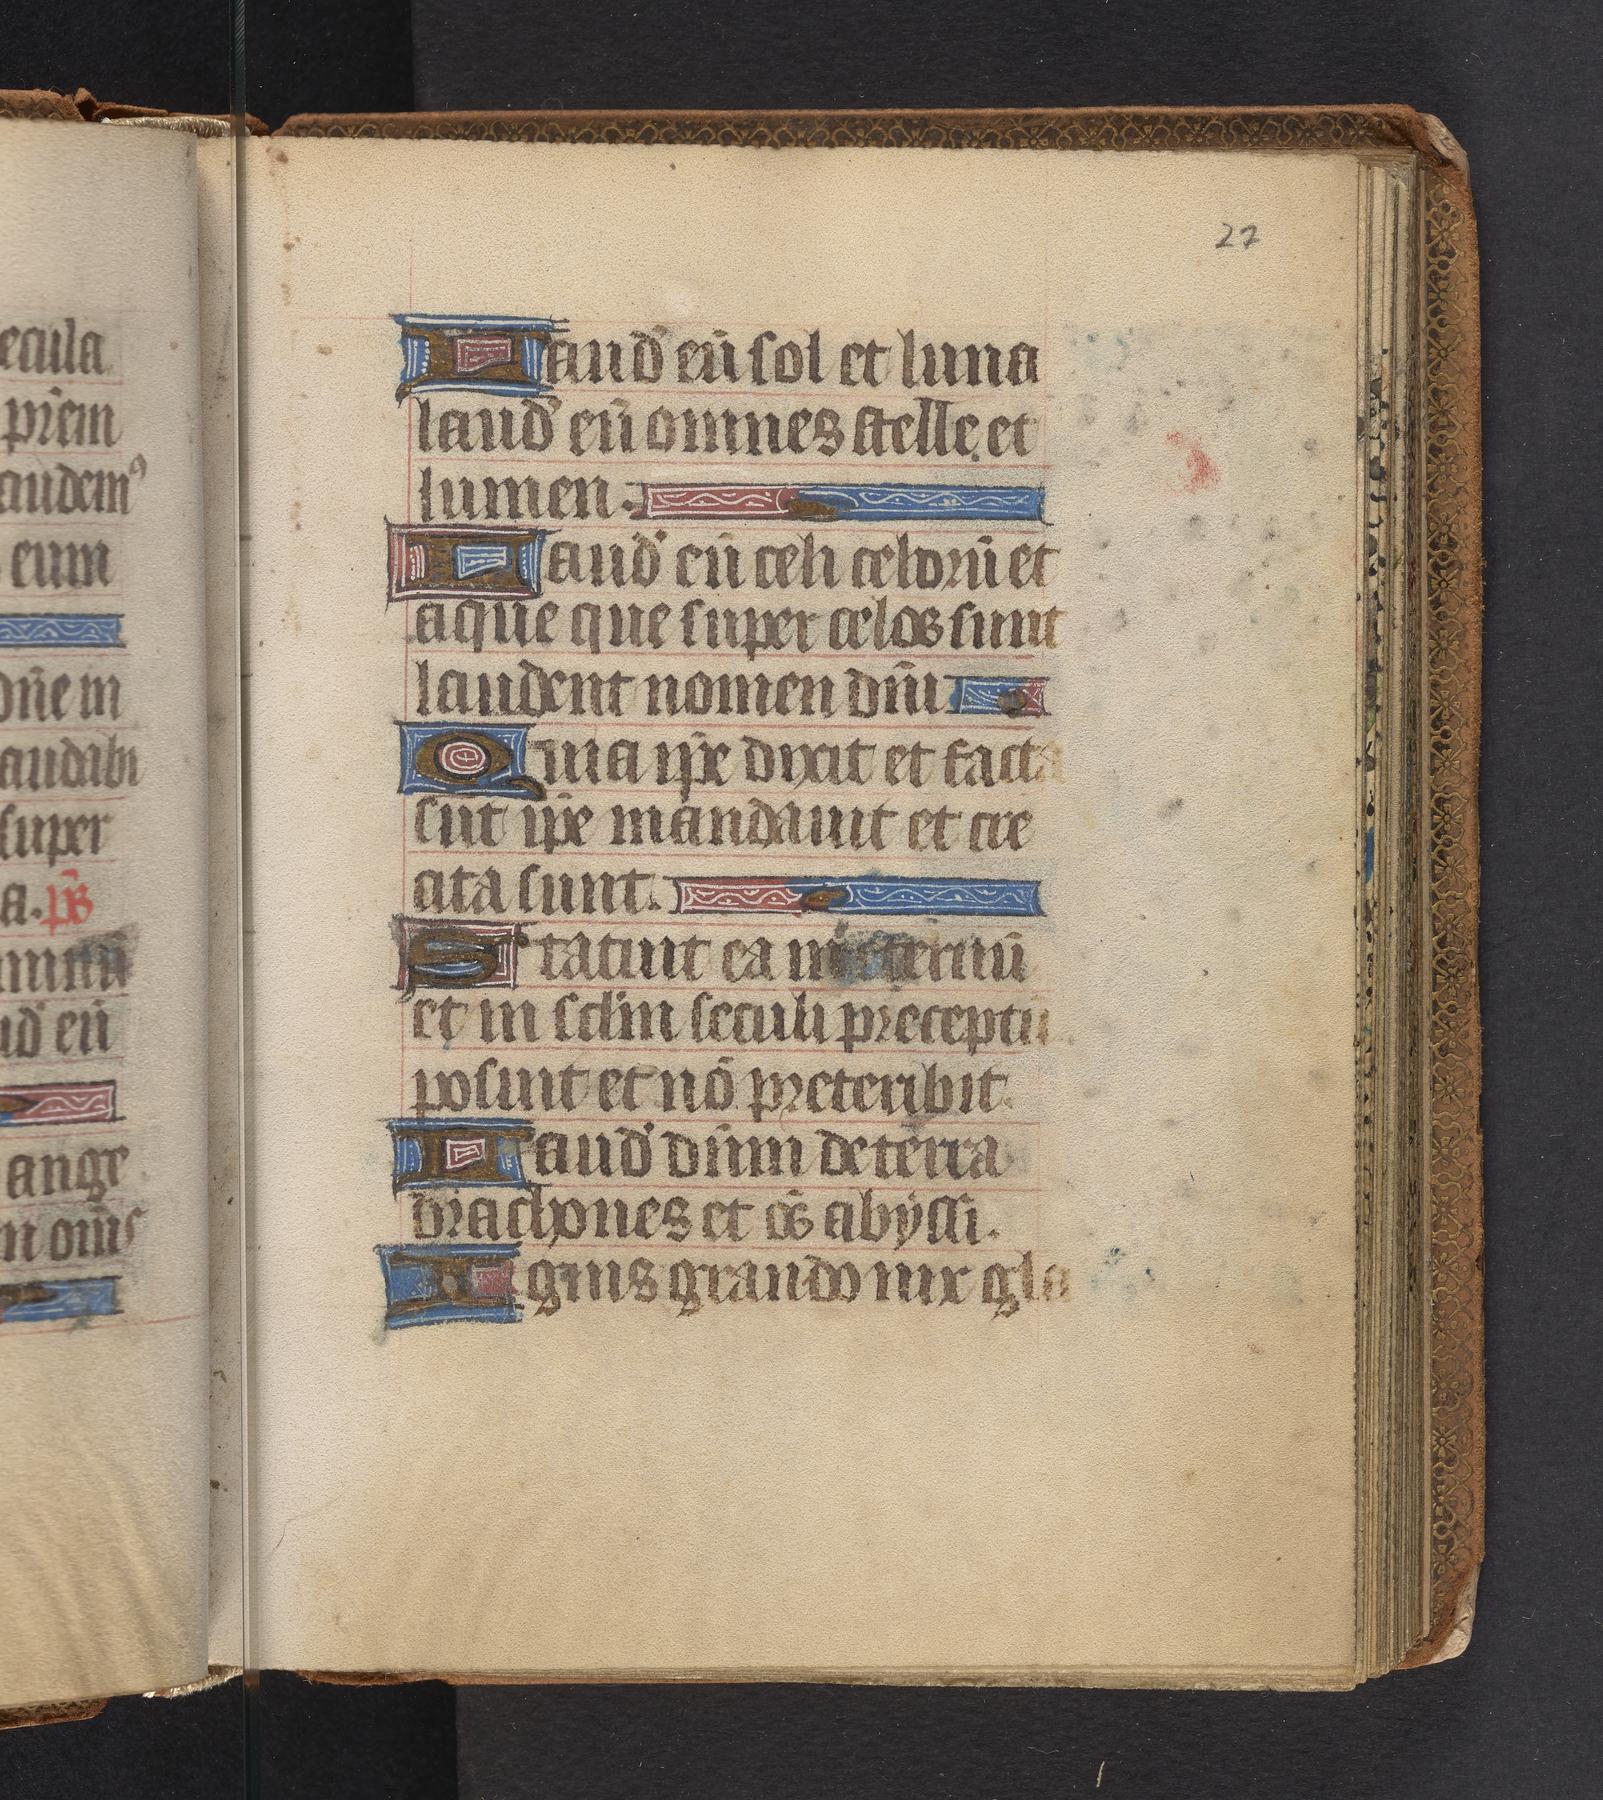 ecula
pr̄em
audem⁹
eum
dn̄e in
audabi
super
a. ps̄
ud' eū
ange
n om̄s
27
Laud' eū sol et luna
laud' eū omnes stelle et
lumen.
Laud' eū celi celorū et
aque que super celos sunt
laudent nomen dn̄i
Quia ip̄e dixit et facta
sūt ip̄e mandauit et cre
ata sunt.
Statuit ea in eternū
et in sclm̄ seculi preceptū
posuit et nō preteribit.
Laud' dn̄m de terra
drachones et os̄ abyssi.
Ignis grando nix gla